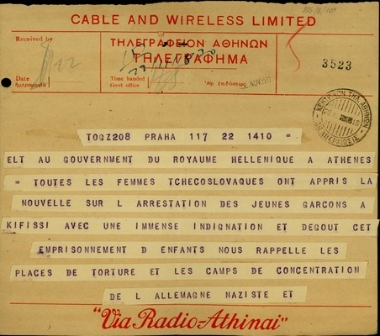 CABLE AND WIRELESS LIMITED
Received by
ΤΗΛΕΓΡΑΦΕΙΟΝ ΑΘΗΝΩΝ
ΤΗΛΕΓΡΑΦΗΜΑ
Date
Time handed
3523
TOGZ208 PRAHA 117 22 1410 =
ELT AU GOUVERNMENT DU ROYAUME HELLENIQUE A ATHENES
= TOUTES LES FEMMES TCHECOSLOVAQUES ONT APPRIS LA
NOUVELLE SUR L ARRESTATION DES JEUNES GARCONS A
KIFISSI AVEC UNE IMMENSE INDIGNATION ET DEGOUT CET
EMPRISONNEMENT D ENFANTS NOUS RAPPELLE LES
PLACES DE TORTURE ET LES CAMPS DE CONCENTRATION
DE L ALLEMAGNE NAZISTE ET
"Via Radio-Athinai"